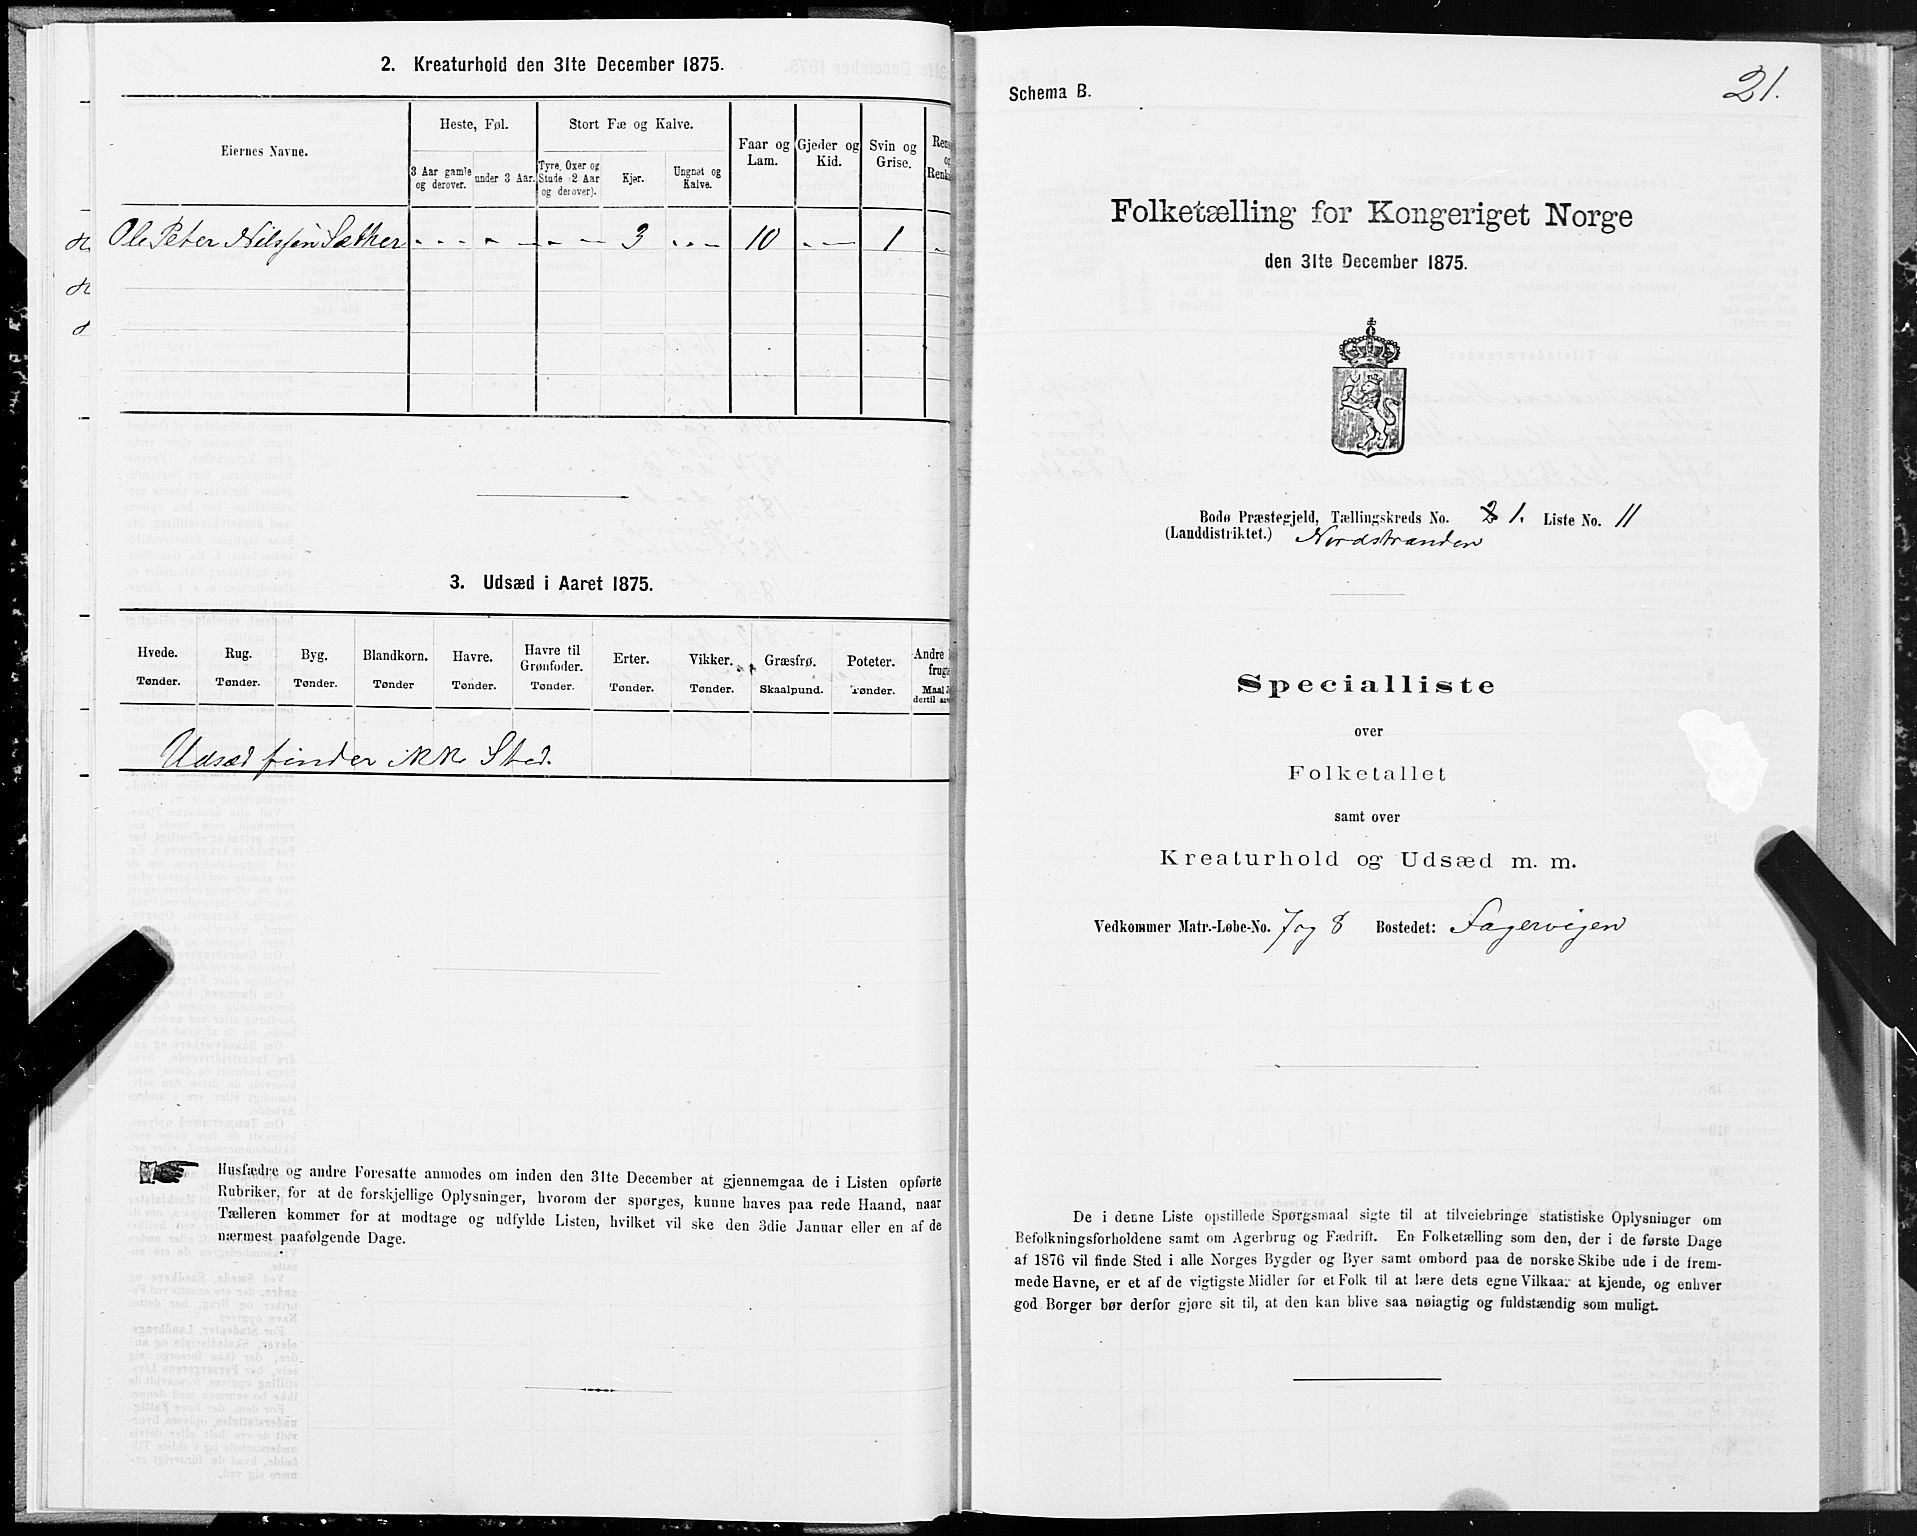 2. Kreaturhold den 31te December 1875.
Eiernes Navne.
Heste, Føl.
Stort Fæ og Kalve.
Faar og Lam.
Gjeder og Kid.
Svin og Grise.
3 Aar gamle og derover.
under 3 Aar.
Tyre, Oxer og Stude (2 Aar og derover).
Kjør.
Ungnøt og Kalve.
Ole Peter Nilssen Sæther - - - - - - - 3 - - - 10 - - 1 -
3. Udsæd i Aaret 1875.
Hvede. Rug. Byg. Blandkorn. Havre. Havre til Grønfoder. Erter. Vikker. Græsfrø. Poteter. Andre
Tønder. Tønder. Tønder. Tønder Tønder. Tønder. Tønder. Tønder. Skaalpund. Tønder. Maal
Udsæd finder ikke Sted.
Husfædre og andre Foresatte anmodes om inden den 31te December at gjennemgaa de i Listen opførte
Rubriker, for at de forskjellige Oplysninger, hvorom der spørges, kunne haves paa rede Haand, naar
Tælleren kommer for at modtage og udfylde Listen, hvilket vil ske den 3die Januar eller en af de
nærmest paafølgende Dage.
21.
Schema B.
Folketælling for Kongeriget Norge
den 31te December 1875.
Bodø Præstegjeld, Tællingskreds No. 2 1. Liste No. 11
(Landdistriktet.) Nordstranden
Specialliste
over
Folketallet
samt over
Kreaturhold og Udsæd m. m.
Vedkommer Matr.-Løbe-No. 7 og 8 Bostedet: Fagervigen
De i denne Liste opstillede Spørgsmaal sigte til at tilveiebringe statistiske Oplysninger om
Befolkningsforholdene samt om Agerbrug og Fædrift. En Folketælling som den, der i de første Dage
af 1876 vil finde Sted i alle Norges Bygder og Byer samt ombord paa de norske Skibe ude i de frem-
mede Havne, er et af de vigtigste Midler for et Folk til at lære dets egne Vilkaar at kjende, og enhver
god Borger bør derfor gjøre sit til, at den kan blive saa nøiagtig og fuldstændig som muligt.